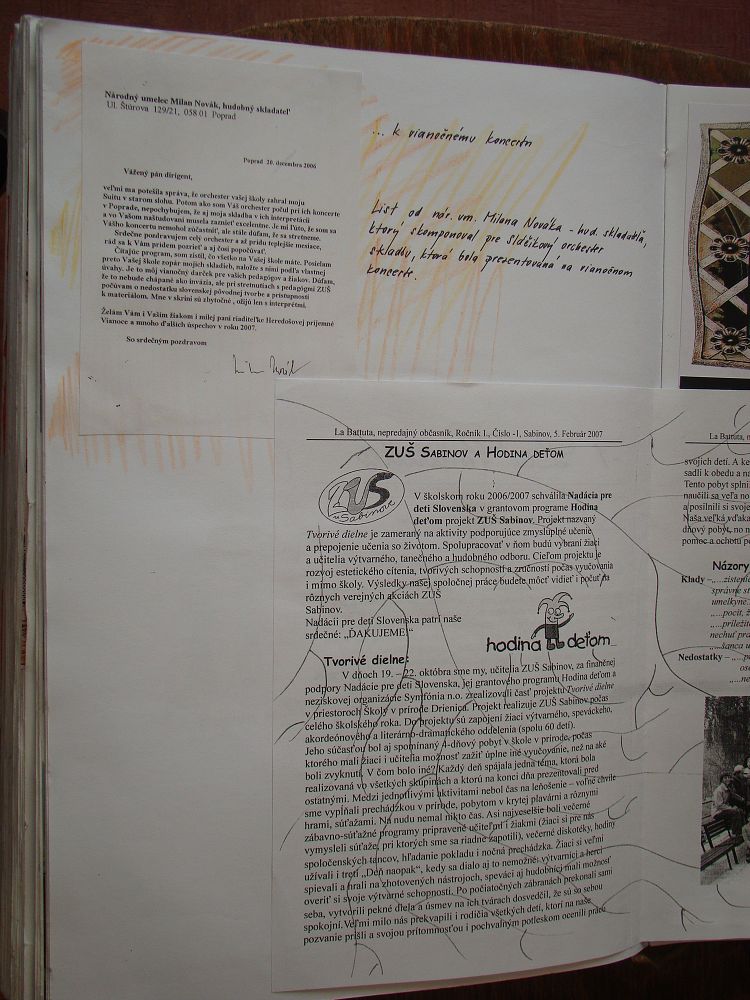 Národný umelec Milan Novák, hudobný skladateľ
Ul. Štúrova 129/21, 058 01 Poprad
Poprad 20. decembra 2006
Vážený pán dirigent,
veľmi ma potešila správa, že orchester vašej školy zahral moju
Suitu v starom slohu. Potom ako som Váš orchester počul pri ich koncerte
v Poprade, nepochybujem, že aj moja skladba v ich interpretácii
a vo Vašom naštudovaní musela zaznieť excelentne. Je mi ľúto, že som sa
Vášho koncertu nemohol zúčastniť, ale stále dúfam, že sa stretneme.
Srdečne pozdravujem celý orchester a až prídu teplejšie mesiace,
rád sa k Vám prídem pozrieť a aj čosi popočúvať.
Čítajúc program, som zistil, čo všetko na Vašej škole máte. Posielam
preto Vašej škole zopár mojich skladieb, naložte s nimi podľa vlastnej
úvahy. Je to môj vianočný darček pre vašich pedagógov a žiakov. Dúfam,
že to nebude chápané ako invázia, ale pri stretnutiach s pedagógmi ZUŠ
počúvam o nedostatku slovenskej pôvodnej tvorbe a prístupnosti
k materiálom. Mne v skrini sú zbytočné , ožijú len s interprétmi.
Želám Vám i Vašim žiakom i milej pani riaditeľke Heredošovej príjemné
Vianoce a mnoho ďalších úspechov v roku 2007.
So srdečným pozdravom
... k vianočnému koncertu
List od nár. um. Milana Nováka - hud. skladateľa,
ktorý skomponoval pre Sláčikový orchester
skladbu, ktorá bola prezentovaná na vianočnom
koncerte.
La Battuta, nepredajný občasník, Ročník 1., Číslo -1, Sabinov, 5. Február 2007
ZUŠ SABINOV A HODINA DEŤOM
ZUŠ
Sabinov
V školskom roku 2006/2007 schválila Nadácia pre
deti Slovenska v grantovom programe Hodina
deťom projekt ZUŠ Sabinov. Projekt nazvaný
Tvorivé dielne je zameraný na aktivity podporujúce zmysluplné učenie
a prepojenie učenia so životom. Spolupracovať v ňom budú vybraní žiaci
a učitelia výtvarného, tanečného a hudobného odboru. Cieľom projektu je
rozvoj estetického cítenia, tvorivých schopností a zručností počas vyučovania
i mimo školy. Výsledky našej spoločnej práce budete môcť vidieť i počuť na
rôznych verejných akciách ZUŠ
Sabinov.
Nadácii pre deti Slovenska patrí naše
srdečné: „ĎAKUJEME!"
hodina deťom
Tvorivé dielne:
V dňoch 19. – 22. októbra sme my, učitelia ZUŠ Sabinov, za finančnej
podpory Nadácie pre deti Slovenska, jej grantového programu Hodina deťom a
neziskovej organizácie Symfónia n.o. zrealizovali časť projektu Tvorivé dielne
v priestoroch Školy v prírode Drienica. Projekt realizuje ZUŠ Sabinov počas
celého školského roka. Do projektu sú zapojení žiaci výtvarného, speváckeho,
akordeónového a literárno-dramatického oddelenia (spolu 60 detí).
Jeho súčasťou bol aj spomínaný 4-dňový pobyt v škole v prírode, počas
ktorého mali žiaci i učitelia možnosť zažiť úplne iné vyučovanie, než na aké
boli zvyknutí. V čom bolo iné? Každý deň spájala jedna téma, ktorá bola
realizovaná vo všetkých skupinách a ktorú na konci dňa prezentovali pred
ostatnými. Medzi jednotlivými aktivitami nebol čas na leňošenie – voľné chvíle
sme vypĺňali prechádzkou v prírode, pobytom v krytej plavárni a rôznymi
hrami, súťažami. Na nudu nemal nikto čas. Asi najveselšie boli večerné
zábavno-súťažné programy pripravené učiteľmi i žiakmi (žiaci si pre nás
vymysleli súťaže, pri ktorých sme sa riadne zapotili), večerné diskotéky, hodiny
spoločenských tancov, hľadanie pokladu i nočná prechádzka. Žiaci si veľmi
užívali i tretí „Deň naopak", kedy sa dialo aj to nemožné: výtvarníci a herci
spievali a hrali na zhotovených nástrojoch, speváci aj hudobníci mali možnosť
overiť si svoje výtvarné schopnosti. Po počiatočných zábranách prekonali sami
seba, vytvorili pekné diela a úsmev na ich tvárach dosvedčil, že sú so sebou
spokojní. Veľmi milo nás prekvapili i rodičia všetkých detí, ktorí na naše
pozvanie prišli a svojou prítomnosťou i pochvalným potleskom ocenili prácu
La Battuta,
svojich detí. A
sadli k obedu a
Tento pobyt
naučili sa veľa
a posilnili si
Naša veľká
dňový pobyt,
pomoc a ochotu
Názory
Klady –
správne
umelkyne
šanca
Nedostatky –